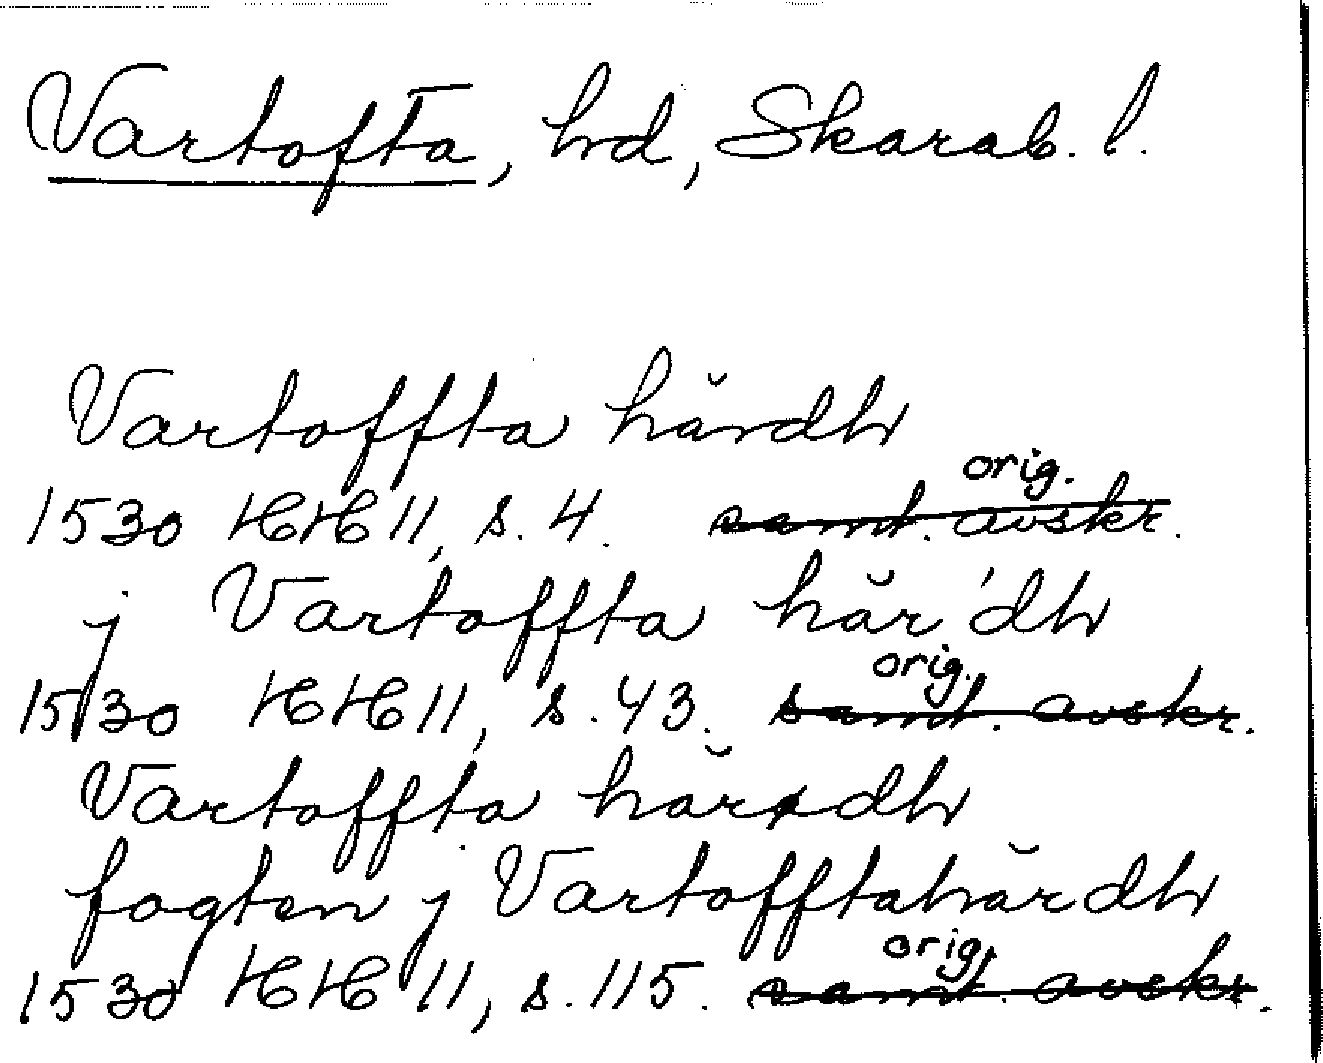 Vartofta, hd, Skarab. l.
Vartoffta hărdh
1530 HH 11, s. 4. orig. samt. avskr.
j Vartoffta hăr'dh
1530 HH 11, s. 43. orig. samt. avskr.
Vartoffta hărdh
fogten j Vartofftahărdh
1530 HH 11, s. 115. orig. samt. avskr.